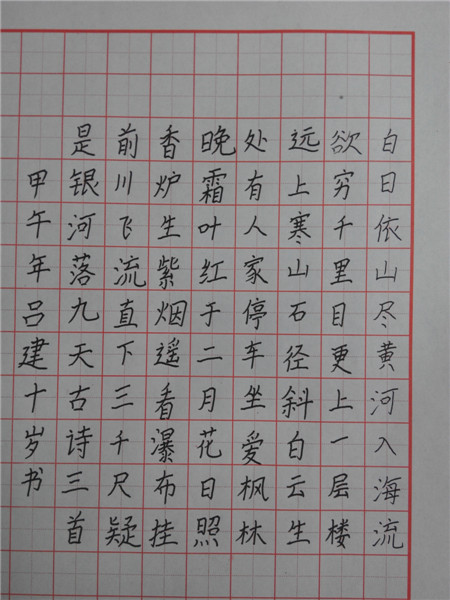 白日依山尽黄河入海流
欲穷千里目更上一层楼
远上寒山石径斜白云生
处有人家停车坐爱枫林
晚霜叶红于二月花日照
香炉生紫烟遥看瀑布挂
前川飞流直下三千尺疑
是银河落九天古诗三首
甲午年吕建十岁书